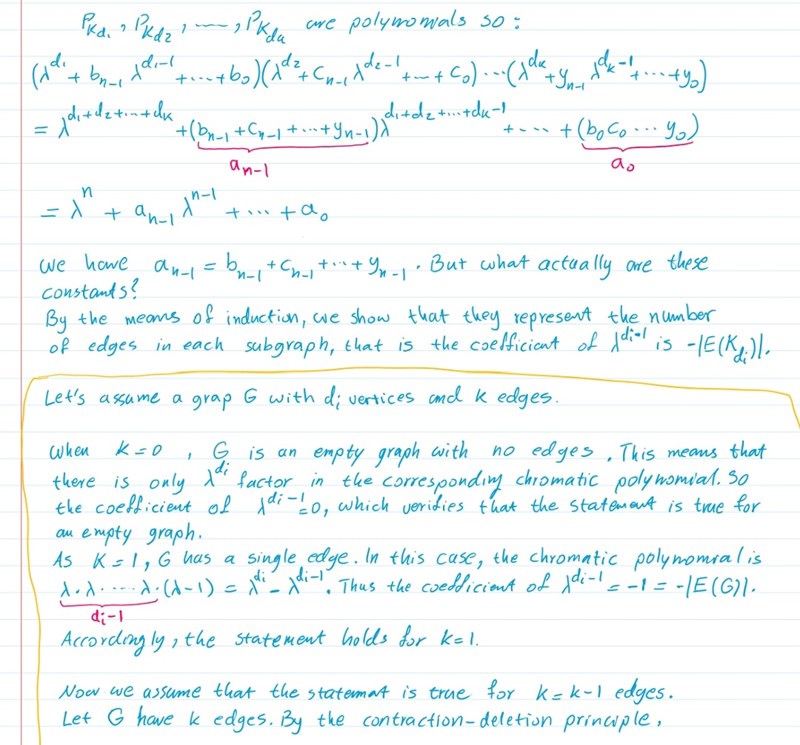 P_{Kd₁}, P_{Kd₂}, ....., P_{Kdₖ} are polynomials so:
(λ^{d₁} + b_{n-1} λ^{d₁-1} + ..... + b₀)(λ^{d₂} + c_{n-1} λ^{d₂-1} + ... + c₀) ... (λ^{dₖ} + y_{n-1} λ^{dₖ-1} + .... + y₀)
= λ^{d₁+d₂+...+dₖ} + (b_{n-1} + c_{n-1} + ... + y_{n-1}) λ^{d₁+d₂+...+dₖ-1} + .... + (b₀c₀ ... y₀)
a_{n-1} a₀
= λ^n + a_{n-1} λ^{n-1} + ... + a₀
We have a_{n-1} = b_{n-1} + c_{n-1} + ... + y_{n-1}. But what actually are these
constants?
By the means of induction, we show that they represent the number
of edges in each subgraph, that is the coefficient of λ^{di-1} is -|E(K_{di})|.
Let's assume a grap G with di vertices and k edges.
When k=0, G is an empty graph with no edges. This means that
there is only λ^{di} factor in the corresponding chromatic polynomial. So
the coefficient of λ^{di-1}=0, which verifies that the statement is true for
an empty graph.
As K=1, G has a single edge. In this case, the chromatic polynomial is
λ.λ.....λ.(λ-1) = λ^{di} - λ^{di-1}. Thus the coefficient of λ^{di-1} = -1 = -|E(G)|.
di-1
Accordingly, the statement holds for k=1.
Now we assume that the statement is true for k=k-1 edges.
Let G have k edges. By the contraction-deletion principle,